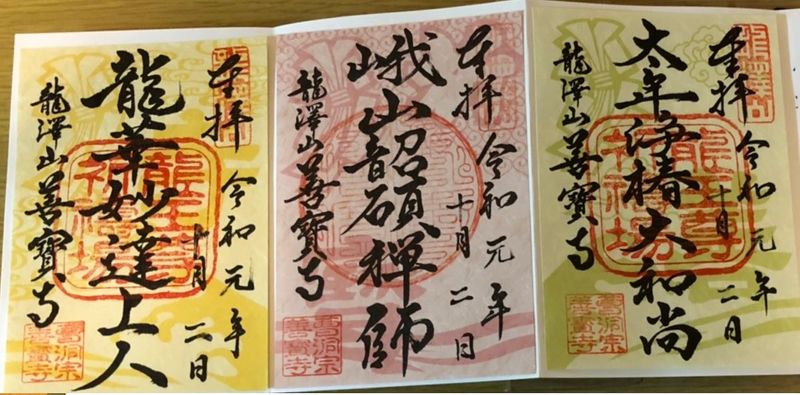 奉拝 令和元年
十月二日
太年浄椿大和尚
龍澤山善寳寺
曹洞宗
善寳寺
奉拝 令和元年
十月二日
峨山韶碩禅師
龍澤山善寳寺
曹洞宗
善寳寺
奉拝 令和元年
十月二日
龍華妙達上人
龍澤山善寳寺
曹洞宗
善寳寺